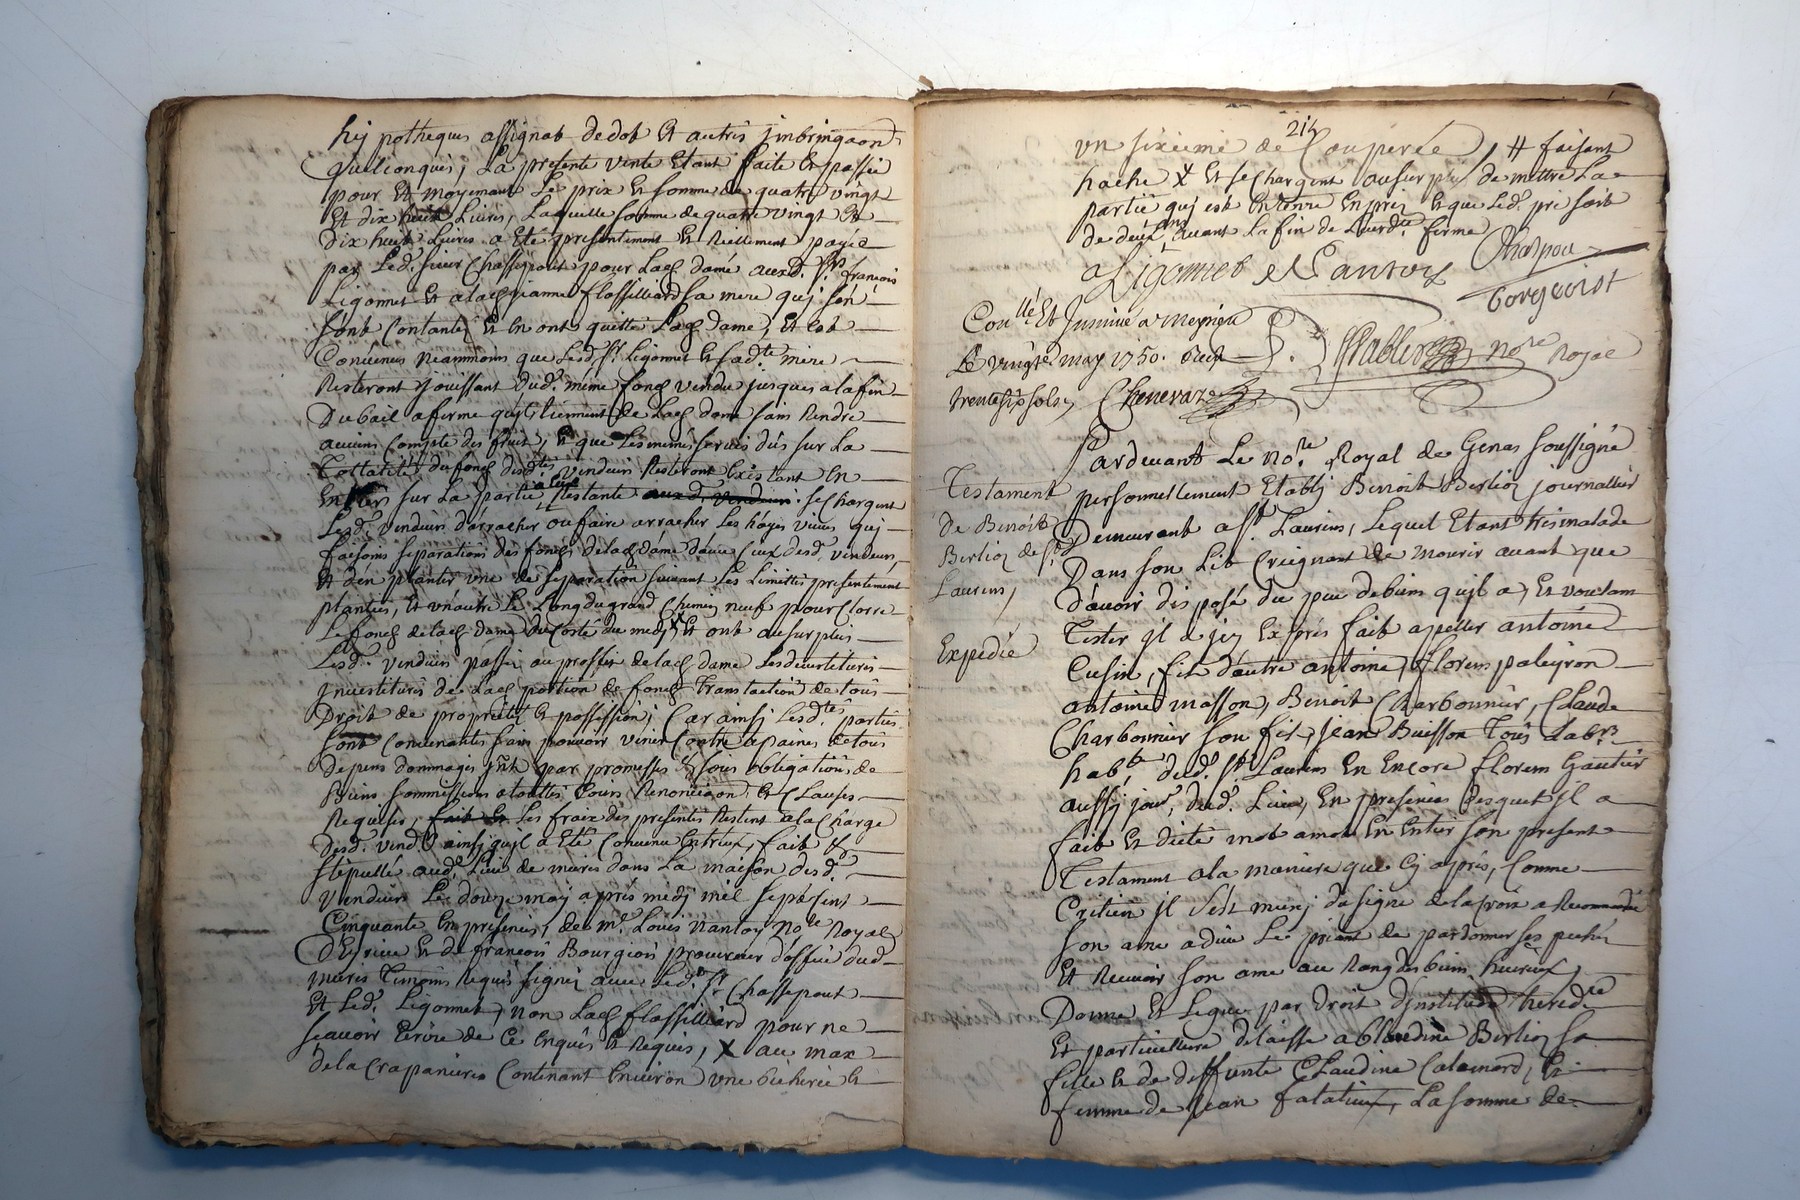 hipotheques assignat de dot et autres
quelconques, La presente vente Etant faite et passée
pour Et moyennant Le prix et somme de quatre vingt
Et dix huit Livres, Laquelle somme de quatre vingt et
Dix huit Livres a Eté presentement et réellement payée
par Led. sieur Chassepout pour Lad. dame auxd. françois
Ligonnet Et a lad. jeanne flossilliard sa mere qui sen
sont Contantés Et En ont quitté Lad. dame, et est
Convenus neammoins que Lesd. Sr. Ligonnet et sad.te mere
Resteront jouissant dud. même fond vendu jusques a la fin
Du bail a ferme qu'ils tiennent de Lad. dame sans Rendre
aucuns Compte des fruit, et que Les memes servis dus sur La
Tottalité du fond desd.tes vendeurs Resteront Existant En
Entiers sur La partie restante aux d. vendeurs. se Chargent
Lesd. vendeurs d'arracher ou faire arracher Les hayes vives qui
faisoins separations des fonds de lad. dame d'avec Ceux desd. vendeurs,
Et d'en planter une de separation suivant Les Limittes presentement
plantées, Et un autre Le Long du grand Chemin neuf pour Clorre
Le fond de lad. dame du Costé du medj X Et ont au surplus
Lesd. vendeurs passé au proffit de lad. dame Les devestitures
jnvestitures de lad. portion de fond Translaction de tous
Droit de propriété et possession; Car ainsj Lesd.tes parties
sont Convenantes sans pouvoir venir Contre a paines de tous
Depens dommages par promesses Et sous obligations de
Biens sommissions a touttes Cours Renonciaon et Clauses
Requises, fait et Les fraix des presentes Restent a la Charge
Desd. vend. ainsj qu'jl a Eté Convenu Entreux, fait et
stipullé aud. Lieu de mures dans La maison desd.
vendeurs Le douze maj apres medj mil sept sent
Cinquante En presences, de m.e Louis Nantoy no.re Royal
D'heyrieu et de francois Bourgeois procureur d'office dud.
mures Temoins requis signés avec Led. Sr. Chassepout
Et Led. Ligonnet, non Lad. flossilliard pour ne
sçavoir Ecrire de Ce Enquis Et Requis, X au max
de la Crapaniere Contenant Environ une bicherée Et

214
un sixieme de Couperée, # faisant
hache X Et se Chargent au surplus de mettre La
partie qui est En terre En prez, et que Led. pré soit
de deux ans avant La fin de Leurd.te ferme
Ligonnet Nantoy Charpou
Bourgeoist
Con.llé Et Jnsinué a Meyzieu
Le vingt may 1750. Reçu
Trente six sols, Chenevaz
no.re Royal

Testament
De Benoit
Berlioz de St
Laurens,
Expedié

Pardevant Le no.re Royal de Genas soussigné
personnellement Etablj Benoit Berlioz journallier
Demeurant a St. Laurens, Lequel Etant tres malade
Dans son Lit Creignant de mourir avant que
D'avoir disposé du peu de biens qu'jl a, Et voulant
Tester jl a jcy Exprés fait apeller antoine
Cusin, fils d'autre antoine, florens paleyron
antoine masson, Benoit Charbonnier, Claude
Charbonnier son fils, jean Buisson Tous Labr.s
hab.ts dud. St. Laurens Et Encore florens Gautier
aussj jour.r dud. Lieu, En presences desquels jl a
fait Et dicté mot a mot En Entier son present
Testament a la maniere que Cj aprés, Comme
Crétien jl s'est munj du signe de la Croix a Recomandé
son ame a dieu Le priant de pardonner ses pechés
Et Recevoir son ame au Rang des biens heureux,
Donne Et Legue par Droit d'jnstitution heredre
Et particulliere delaisse a Claudine Berlioz sa
fille et de deffunte Claudine Calamard, Et
femme de jean falatieux, La somme de